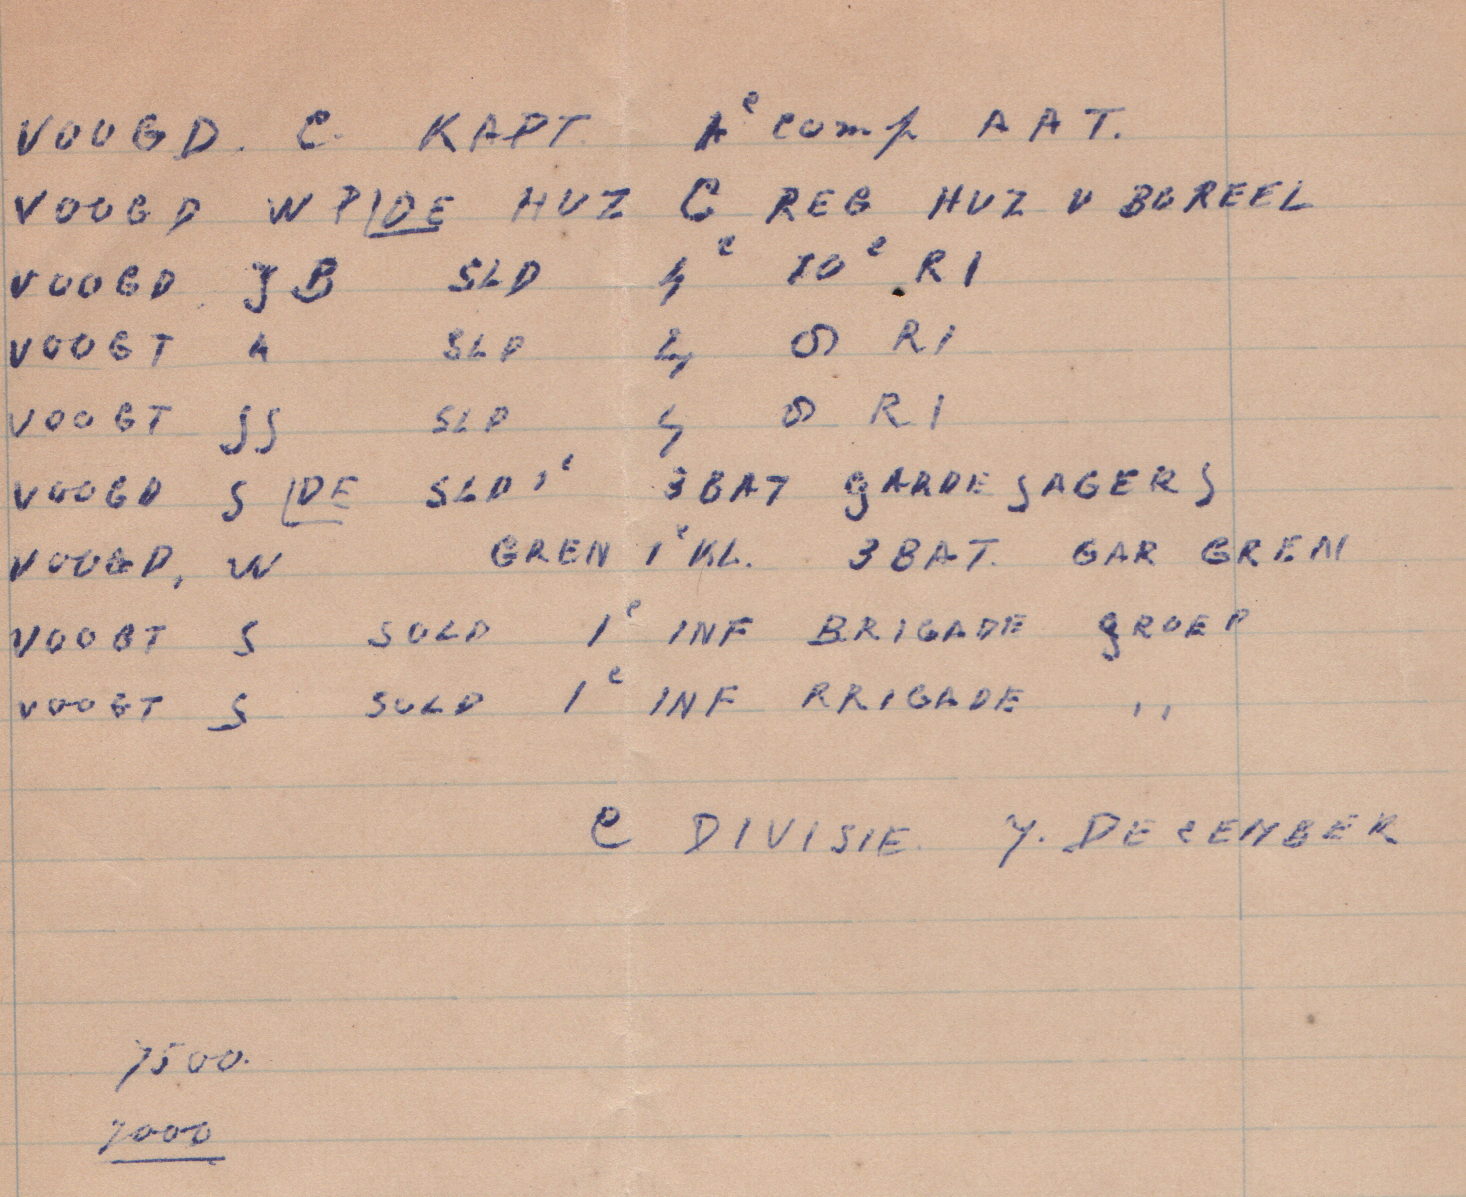 VOOGD. C. KAPT. Ae comp AAT.
VOOGD W P |DE HUZ C REG HUZ V BOREEL
VOOGD JB SLD 4e 10e RI
VOOGT A SLD 4 8 RI
VOOGT JJ SLD 4 8 RI
VOOGD J |DE SLD 1e 3 BAT GARDE JAGERS
VOOGD, W GREN 1e KL. 3 BAT. GAR GREN
VOOGT J SOLD 1e INF BRIGADE GROEP
VOOGT J SOLD 1e INF BRIGADE ,,
C DIVISIE. 7. DECEMBER
7500.
7000